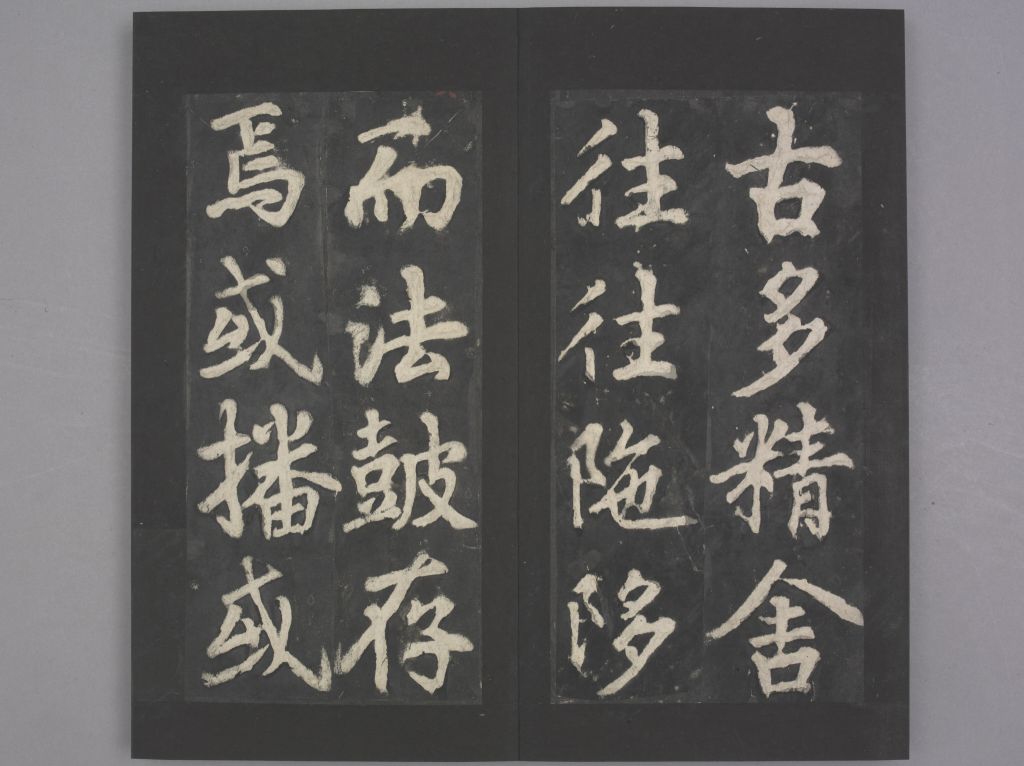 古多精舍
往往陁陊
而法皷存
焉或播或